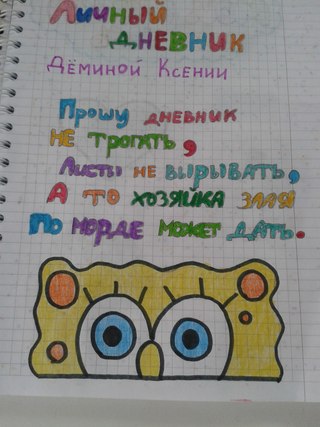 Личный
дневник
Дёминой Ксении
Прошу дневник
не трогать,
Листы не вырывать,
А то хозяйка злая
По морде может дать.